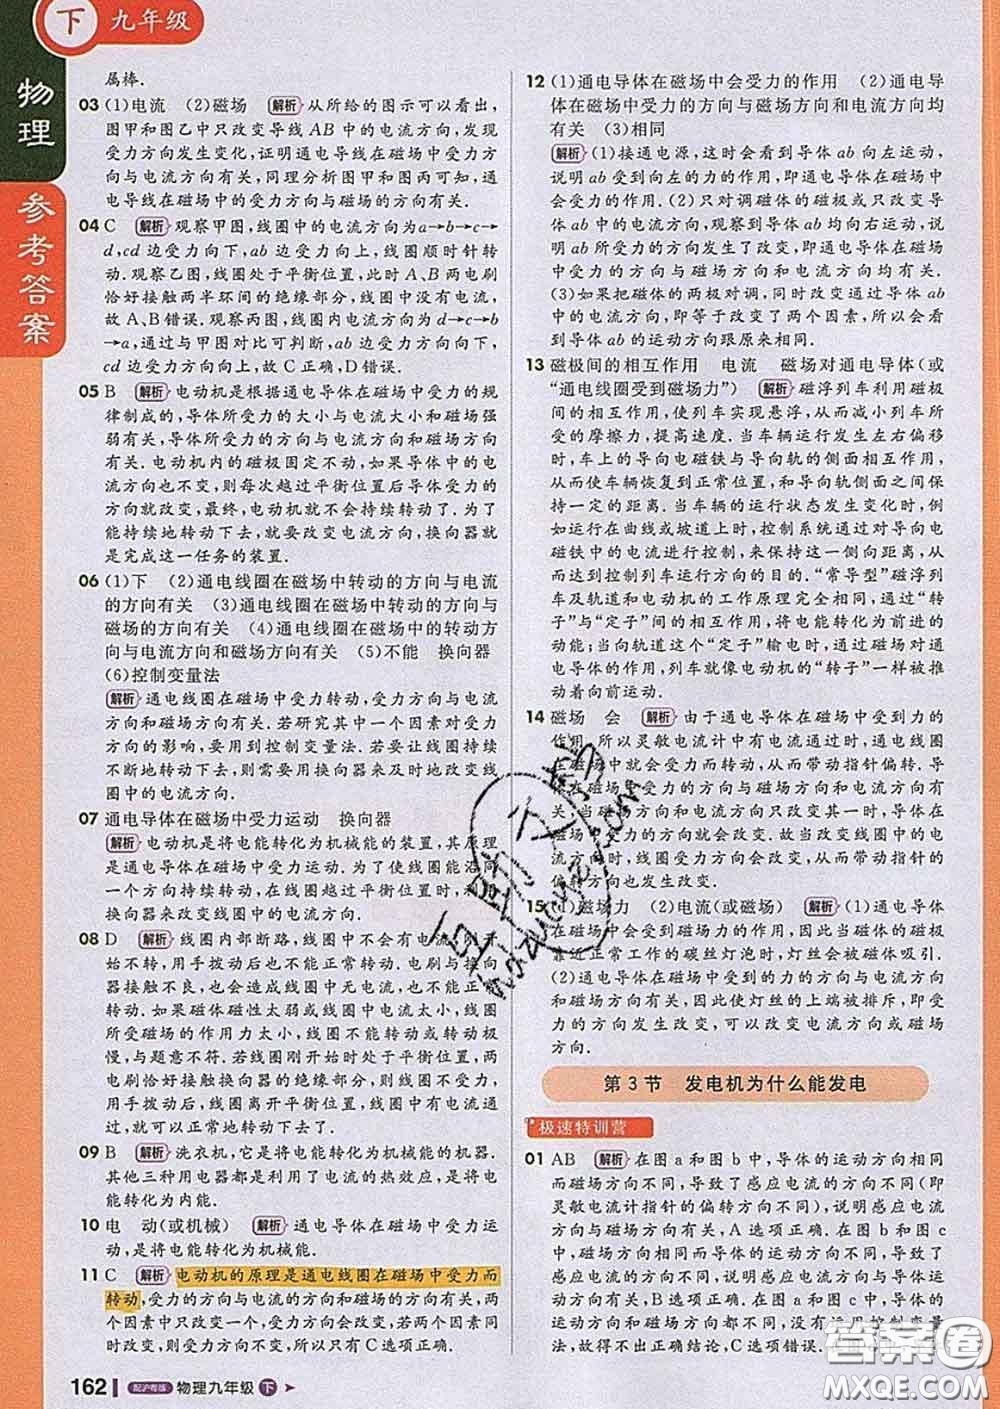 下 九年级
物理
参考答案
属棒.
03 (1)电流 (2)磁场 解析 从所给的图示可以看出,
图甲和图乙中只改变导线AB中的电流方向,发现
受力方向发生变化,证明通电导线在磁场中受力方
向与电流方向有关,同理分析图甲和图丙可知,通
电导线在磁场中的受力方向与磁场的方向有关.
04 C 解析 观察甲图,线圈中的电流方向为a→b→c→
d,cd边受力向下,ab边受力向上,线圈顺时针转
动.观察乙图,线圈处于平衡位置,此时A、B两电刷
恰好接触两半环间的绝缘部分,线圈中没有电流,
故A、B错误.观察丙图,线圈内电流方向为d→c→b
→a,通过与甲图对比可判断,ab边受力方向向下,
cd边受力方向向上,故C正确,D错误.
05 B 解析 电动机是根据通电导体在磁场中受力的规
律制成的,导体所受力的大小与电流大小和磁场强
弱有关,导体所受力的方向与电流方向和磁场方向
有关.电动机内的磁极固定不动,如果导体中的电
流方向也不变,则每次越过平衡位置后导体受力的
方向就改变,最终,电动机就不能持续转动了.为了
能持续地转动下去,就要改变电流方向,换向器就
是完成这一任务的装置.
06 (1)下 (2)通电线圈在磁场中转动的方向与电流
的方向有关 (3)通电线圈在磁场中转动的方向与
磁场的方向有关 (4)通电线圈在磁场中的转动方
向与电流方向和磁场方向有关 (5)不能 换向器
(6)控制变量法
解析 通电线圈在磁场中受力转动,受力方向与电流
方向和磁场方向有关.若研究其中一个因素对受力
方向的影响,要用到控制变量法.若要让线圈持续
不断地转动下去,则需要用换向器来及时地改变线
圈中的电流方向.
07 通电导体在磁场中受力运动 换向器
解析 电动机是将电能转化为机械能的装置,其原理
是通电导体在磁场中受力运动.为了使线圈能沿同
一个方向持续转动,在线圈越过平衡位置时,利用
换向器来改变线圈中的电流方向.
08 D 解析 线圈内部断路,线圈中不会有电流,刚开
始不转,用手拨动后也不能正常转动.电刷与换向
器接触不良,也会造成线圈中无电流,也不能正常
转动.如果磁体磁性太弱或线圈中电流太小,线圈
所受磁场的作用力太小,线圈不能转动或转动极
慢,与题意不符.若线圈刚开始时处于平衡位置,两
电刷接触换向器的绝缘部分,则线圈不能转动,但
用手拨动后,线圈离开平衡位置,线圈中有了电流,
就可以正常地转动下去了.
09 B 解析 洗衣机,它是将电能转化为机械能的机器.
其他三个电器都是利用了电流的热效应,是将电能
转化为内能.
10 电 动(或机械) 解析 通电导体在磁场中受力运
动,是将电能转化为机械能.
11 C 解析 电动机的原理是通电线圈在磁场中受力而
转动,受力的方向与电流的方向和磁场的方向有关,两
个因素中只改变一个,受力方向会改变,若两个因素同
时改变,则受力方向不变,所以只有C选项正确.
162 配沪粤版 物理九年级 下
12 (1)通电导体在磁场中会受力的作用 (2)通电导
体在磁场中受力的方向与磁场方向和电流方向均
有关 (3)相同
解析 (1)接通电源,这时会看到导体ab向左运动,
说明ab受到向左的力的作用,即通电导体在磁场中
会受力的作用.(2)只对调磁体的磁极或只改变导
体ab中的电流方向,观察到导体ab均向右运动,说
明ab所受力的方向发生了改变,即通电导体在磁场
中受力的方向与磁场方向和电流方向均有关.
(3)如果把磁体的两极对调,同时改变通过导体ab
中的电流方向,即等于改变了两个因素,所以会看
到导体ab的运动方向跟原来相同.
13 磁极间的相互作用 电流 磁场对通电导体(或
“通电线圈受到磁场力”) 解析 磁浮列车利用磁极
间的相互作用,使列车实现悬浮,从而减小列车所
受的摩擦力,提高速度.当车辆运行发生左右偏移
时,车上的导向电磁铁与导向轨的侧面相互作用,
从而使车辆恢复到正常位置,和导向轨侧面之间保
持一定的距离.当车辆的运行状态发生变化时,例
如运行在曲线或坡道上时,控制系统通过对导向电
磁铁中的电流进行控制,来保持这一侧向距离,从
而达到控制列车运行方向的目的.“常导型”磁浮列
车及轨道和电动机的工作原理完全相同,通过“转
子”与“定子”间的相互作用,将电能转化为前进的
动能;当向轨道这个“定子”输电时,通过磁场对通
电导体的作用,列车就像电动机的“转子”一样被推动
着向前运动.
14 磁场 会 解析 由于通电导体在磁场中受到力的
作用,所以灵敏电流计中有电流通过时,通电线圈
在磁场中就会受力而转动,从而带动指针偏转.
通电导体在磁场中受力方向与磁场方向和电流方向有
关,当磁场方向和电流方向只改变其一时,导体在
磁场中受力方向会改变.故当改变线圈中的电流方
向时,线圈受力方向会改变,从而带动指针的
偏转方向也发生改变.
15 (1)磁场力 (2)电流(或磁场) 解析 (1)通电导体
在磁场中会受到力的作用,因此当磁体的磁极
靠近正常工作的碳丝灯泡时,灯丝会被磁体吸引.
(2)通电导体在磁场中受到的力的方向与电流方向
和磁场方向有关,因此使灯丝的上端被排斥,即受
力的方向发生改变,可以改变电流方向或磁场
方向.
第3节 发电机为什么能发电
极速特训营
01 AB 解析 在图a和图b中,导体的运动方向相同
而磁场方向不同,导致了感应电流的方向不同(即
灵敏电流计指针的偏转方向不同),说明感应电流
方向与磁场方向有关,A选项正确.在图b和图c
中,磁场方向相同而导体的运动方向不同,导致了
感应电流的方向不同,说明感应电流方向与导体运
动方向有关,B选项正确.在图a和图c中,导体的
运动方向和磁场方向都不同,没有运用控制变量
法,故不能得出正确结论,C选项错误.
答案圈
MXQE.COM
互助文学
hdzuoye.com